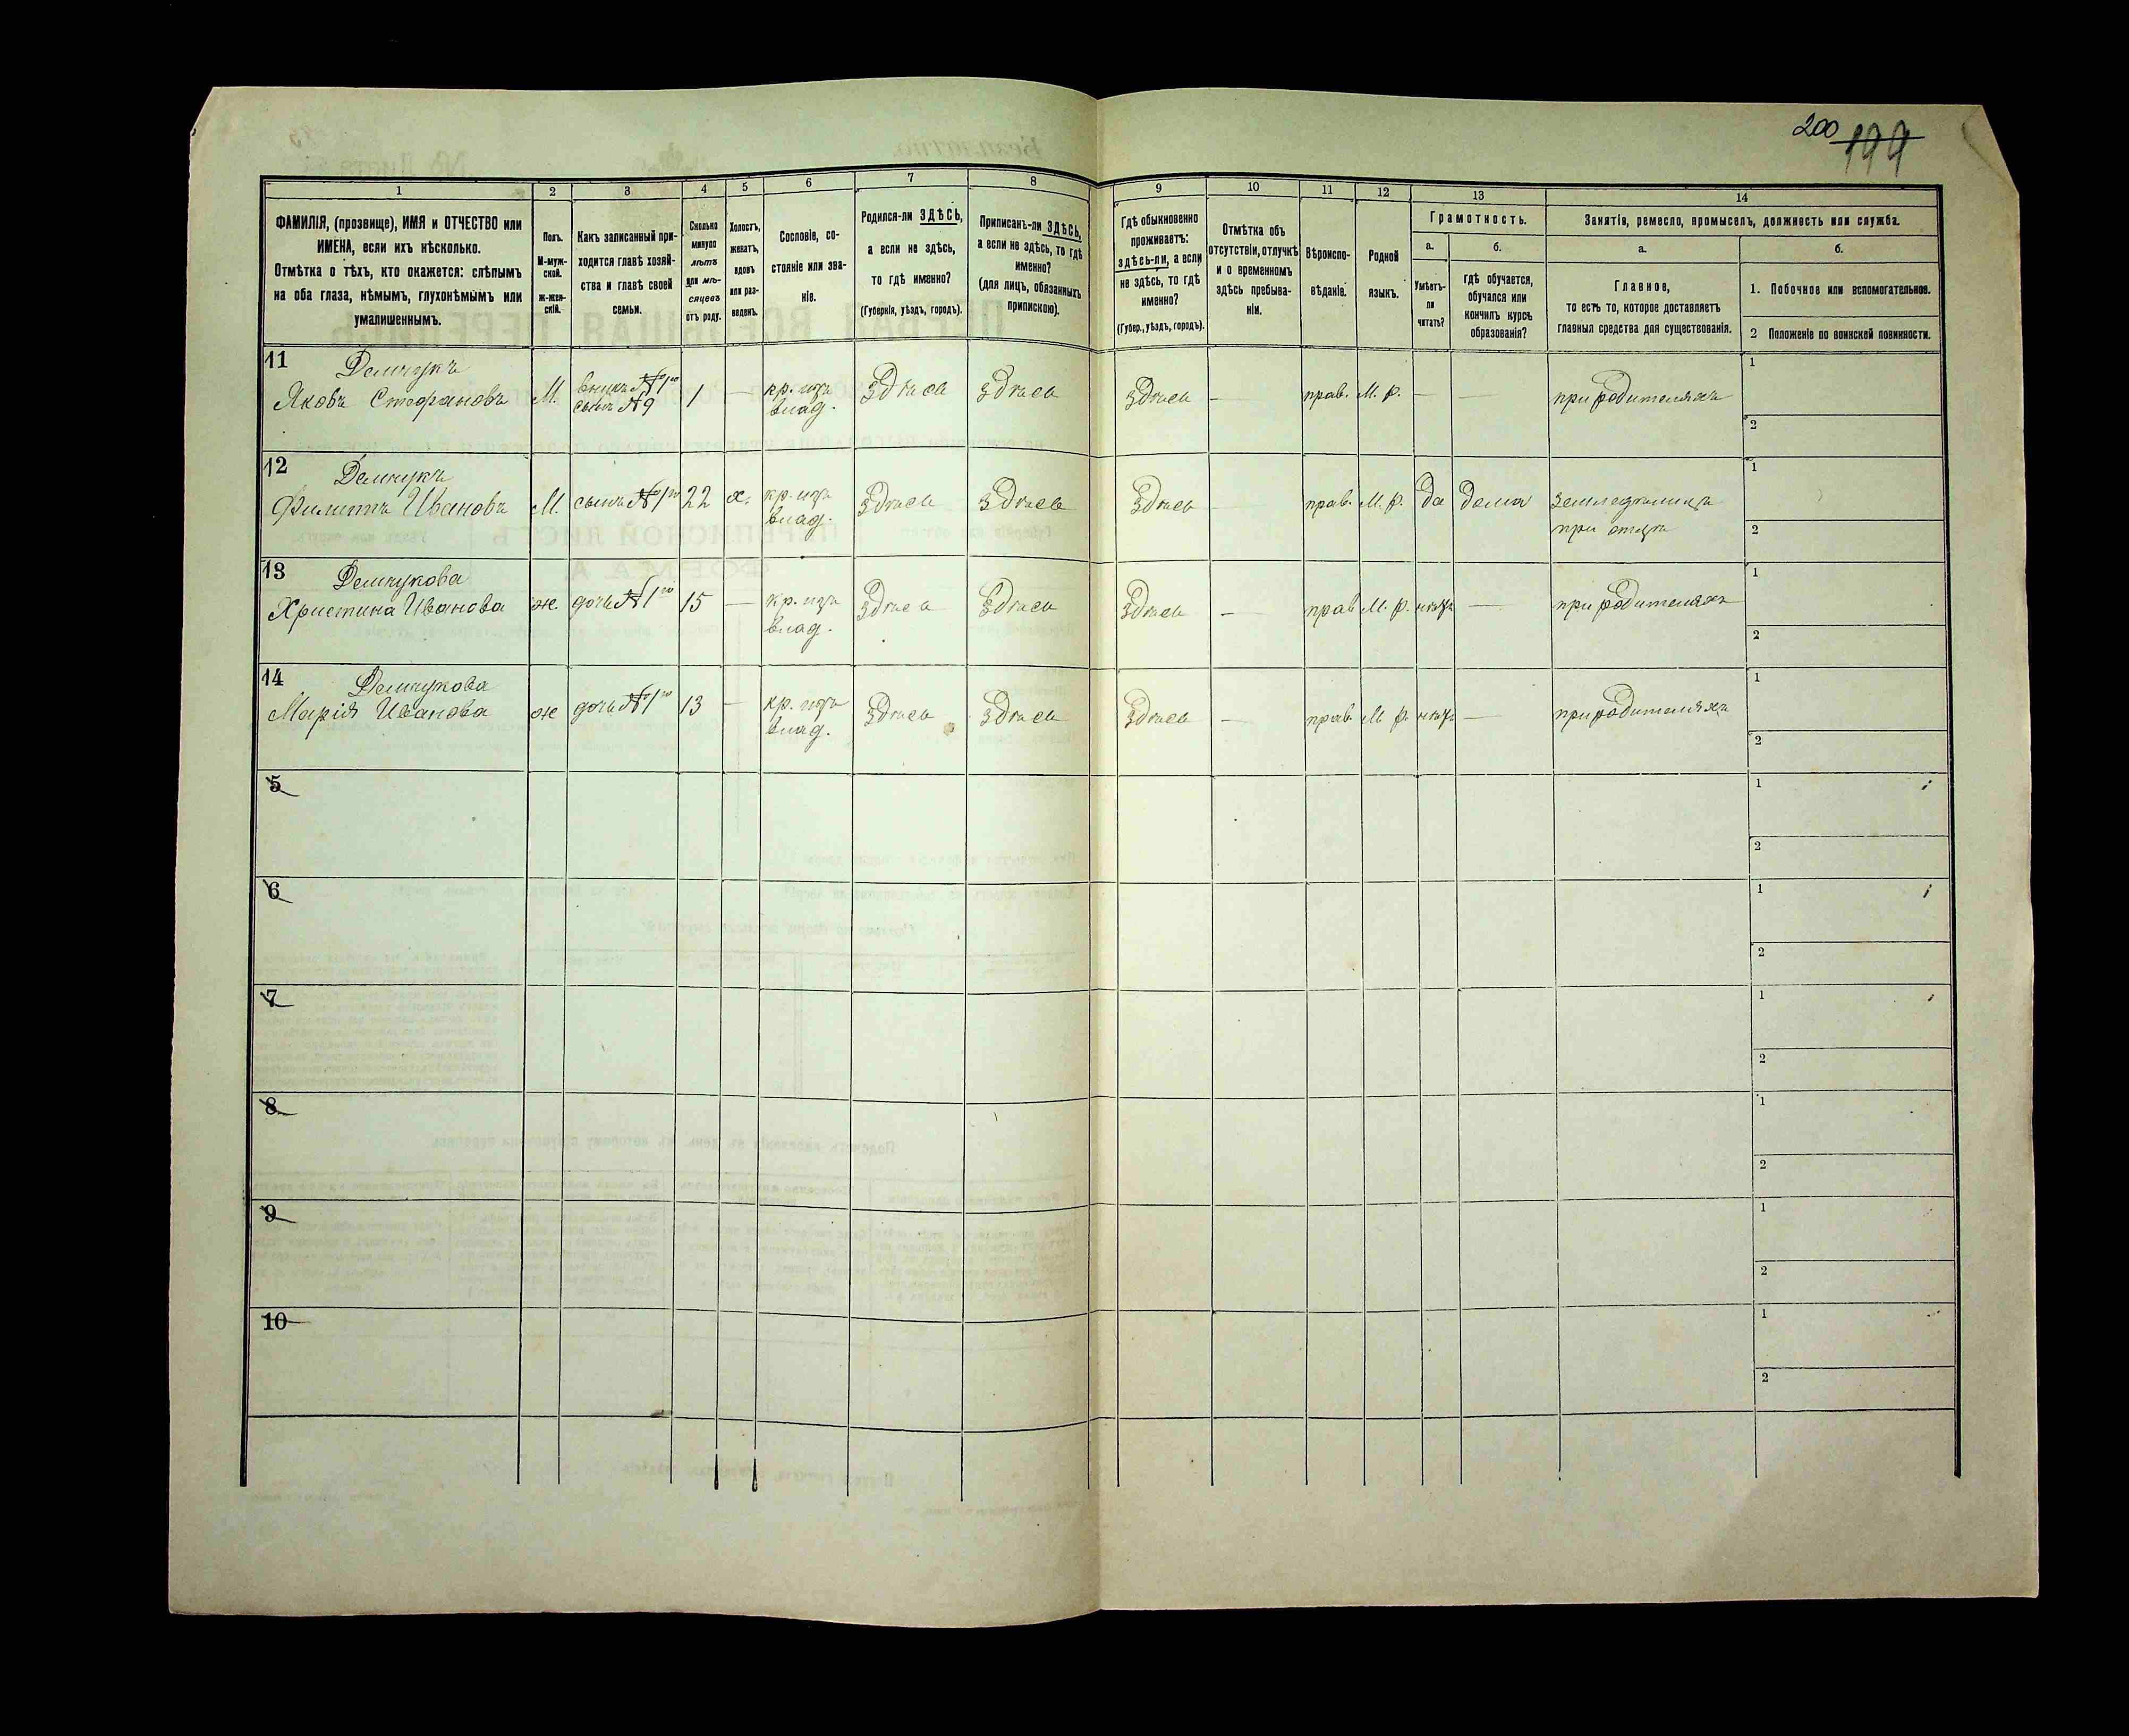 200 199
1 2 3 4 5 6 7 8 9 10 11 12 13 14
ФАМИЛІЯ, (прозвище), ИМЯ и ОТЧЕСТВО или
ИМЕНА, если ихъ нѣсколько.
Отмѣтка о тѣхъ, кто окажется: слѣпымъ
на оба глаза, нѣмымъ, глухонѣмымъ или
умалишеннымъ.
Полъ.
М-муж-
ской.
ж-жен-
скій.
Какъ записанный при-
ходится главѣ хозяй-
ства и главѣ своей
семьи.
Сколько
минуло
лѣтъ
или мѣ-
сяцевъ
отъ роду.
Холостъ,
женатъ,
вдовъ
или раз-
веденъ.
Сословіе, со-
стояніе или зва-
ніе.
Родился-ли ЗДѢСЬ,
а если не здѣсь,
то гдѣ именно?
(Губернія, уѣздъ, городъ).
Приписанъ-ли ЗДѢСЬ,
а если не здѣсь, то гдѣ
именно?
(для лицъ, обязанныхъ
припискою).
Гдѣ обыкновенно
проживаетъ:
здѣсь-ли, а если
не здѣсь, то гдѣ
именно?
(Губер., уѣздъ, городъ).
Отмѣтка объ
отсутствіи, отлучкѣ
и о временномъ
здѣсь пребыва-
ніи.
Вѣроиспо-
вѣданіе.
Родной
языкъ.
Грамотность.
а.
Умѣетъ-
ли
читать?
б.
гдѣ обучается,
обучался или
кончилъ курсъ
образованія?
Занятія, ремесло, промыселъ, должность или служба.
а.
Главное,
то есть то, которое доставляетъ
главныя средства для существованія.
б.
1. Побочное или вспомогательное.
2 Положеніе по воинской повинности.
11 Демчукъ
Яковъ Стефановъ М. внукъ №1го сынъ №9 1 — кр. изъ влад. Здѣсь Здѣсь Здѣсь — прав. М. р. — — при родителяхъ 1 2
12 Демчукъ
Филиппъ Ивановъ М. сынъ №1го 22 х. кр. изъ влад. Здѣсь Здѣсь Здѣсь — прав. М. р. да дома земледѣлецъ
при отцѣ 1 2
13 Демчукова
Христина Иванова ж. дочь №1го 15 — кр. изъ влад. Здѣсь Здѣсь Здѣсь — прав М. р. нѣтъ — при родителяхъ 1 2
14 Демчукова
Марія Иванова ж дочь №1го 13 — кр. изъ влад. Здѣсь Здѣсь Здѣсь — прав. М. р. нѣтъ — при родителяхъ 1 2
5 1 2
6 1 2
7 1 2
8 1 2
9 1 2
10 1 2